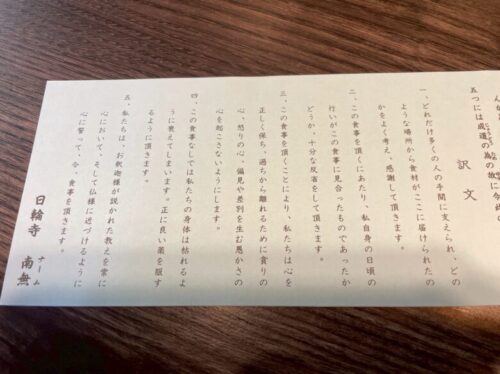 五つには成道の為の故に今
訳文
一、どれだけ多くの人の手間に支えられ、どの
ような場所から食材がここに届けられたの
かをよく考え、感謝して頂きます。
二、この食事を頂くにあたり、私自身の日頃の
行いがこの食事に見合ったものであったか
どうか、十分な反省をして頂きます。
三、この食事を頂くことにより、私たちは心を
正しく保ち、過ちから離れるために貪りの
心、怒りの心、偏見や差別を生む愚かさの
心を起こさないようにします。
四、この食事なしでは私たちの身体は枯れるよ
うに衰えてしまいます。正に良い薬を服す
るように頂きます。
五、私たちは、お釈迦様が説かれた教えを常に
心において、そして仏様に近づけるように
心に誓って、今、食事を頂きます。
日輪寺
ナーム
南無